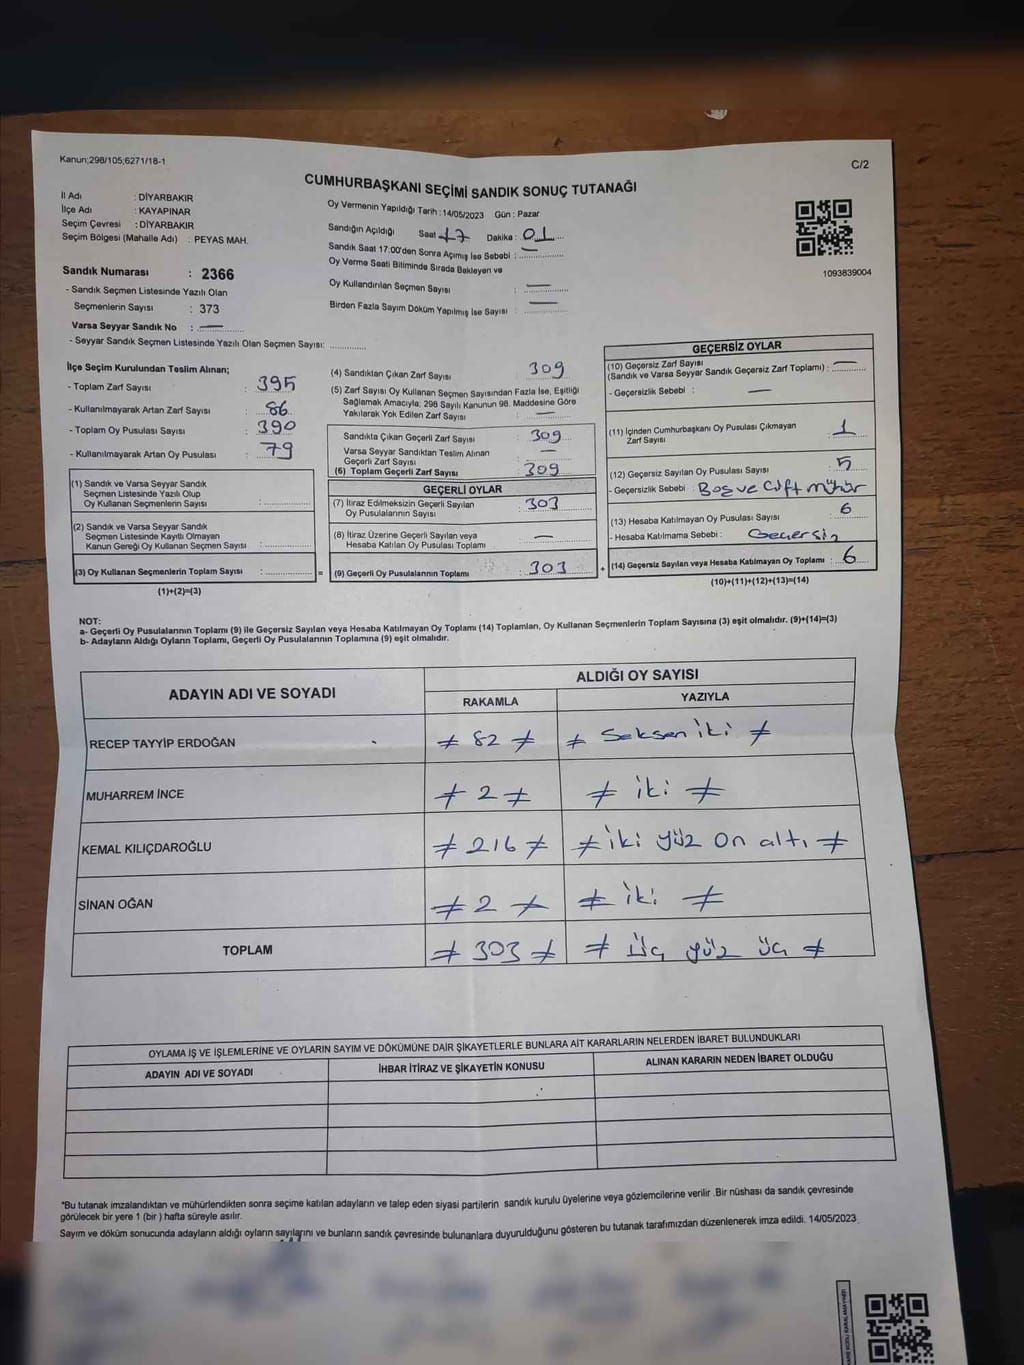 Kanun;298/105;6271/18-1
C/2
CUMHURBAŞKANI SEÇİMİ SANDIK SONUÇ TUTANAĞI
İl Adı : DİYARBAKIR
İlçe Adı : KAYAPINAR
Seçim Çevresi : DİYARBAKIR
Seçim Bölgesi (Mahalle Adı) : PEYAS MAH.
Sandık Numarası : 2366
- Sandık Seçmen Listesinde Yazılı Olan
Seçmenlerin Sayısı : 373
Varsa Seyyar Sandık No : —
- Seyyar Sandık Seçmen Listesinde Yazılı Olan Seçmen Sayısı: ..............
Oy Vermenin Yapıldığı Tarih : 14/05/2023 Gün : Pazar
Sandığın Açıldığı Saat 17 Dakika : 01
Sandık Saat 17:00'den Sonra Açımış İse Sebebi : —
Oy Verme Saati Bitiminde Sırada Bekleyen ve
Oy Kullandırılan Seçmen Sayısı : —
Birden Fazla Sayım Döküm Yapılmış İse Sayısı : —
1093839004
İlçe Seçim Kurulundan Teslim Alınan;
- Toplam Zarf Sayısı : 395
- Kullanılmayarak Artan Zarf Sayısı : 86
- Toplam Oy Pusulası Sayısı : 390
- Kullanılmayarak Artan Oy Pusulası : 79
(1) Sandık ve Varsa Seyyar Sandık
Seçmen Listesinde Yazılı Olup
Oy Kullanan Seçmenlerin Sayısı :
(2) Sandık ve Varsa Seyyar Sandık
Seçmen Listesinde Kayıtlı Olmayan
Kanun Gereği Oy Kullanan Seçmen Sayısı :
(3) Oy Kullanan Seçmenlerin Toplam Sayısı : =
(1)+(2)=(3)
(4) Sandıktan Çıkan Zarf Sayısı : 309
(5) Zarf Sayısı Oy Kullanan Seçmen Sayısından Fazla İse, Eşitliği
Sağlamak Amacıyla; 298 Sayılı Kanunun 98. Maddesine Göre
Yakılarak Yok Edilen Zarf Sayısı : —
Sandıkta Çıkan Geçerli Zarf Sayısı : 309
Varsa Seyyar Sandıktan Teslim Alınan
Geçerli Zarf Sayısı : —
(6) Toplam Geçerli Zarf Sayısı : 309
GEÇERLİ OYLAR
(7) İtiraz Edilmeksizin Geçerli Sayılan
Oy Pusulalarının Sayısı : 303
(8) İtiraz Üzerine Geçerli Sayılan veya
Hesaba Katılan Oy Pusulası Toplamı : —
(9) Geçerli Oy Pusulalarının Toplamı : 303 +
GEÇERSİZ OYLAR
(10) Geçersiz Zarf Sayısı
(Sandık ve Varsa Seyyar Sandık Geçersiz Zarf Toplamı) : —
- Geçersizlik Sebebi : —
(11) İçinden Cumhurbaşkanı Oy Pusulası Çıkmayan
Zarf Sayısı : 1
(12) Geçersiz Sayılan Oy Pusulası Sayısı : 5
- Geçersizlik Sebebi : Boş ve Çift mühür
(13) Hesaba Katılmayan Oy Pusulası Sayısı : 6
- Hesaba Katılmama Sebebi : Geçersiz
(14) Geçersiz Sayılan veya Hesaba Katılmayan Oy Toplamı : 6
(10)+(11)+(12)+(13)=(14)
NOT:
a- Geçerli Oy Pusulalarının Toplamı (9) ile Geçersiz Sayılan veya Hesaba Katılmayan Oy Toplamı (14) Toplamları, Oy Kullanan Seçmenlerin Toplam Sayısına (3) eşit olmalıdır. (9)+(14)=(3)
b- Adayların Aldığı Oyların Toplamı, Geçerli Oy Pusulalarının Toplamına (9) eşit olmalıdır.
ADAYIN ADI VE SOYADI
ALDIĞI OY SAYISI
RAKAMLA YAZIYLA
RECEP TAYYİP ERDOĞAN ≠ 82 ≠ ≠ Seksen iki ≠
MUHARREM İNCE ≠ 2 ≠ ≠ iki ≠
KEMAL KILIÇDAROĞLU ≠ 216 ≠ ≠ iki yüz on altı ≠
SİNAN OĞAN ≠ 2 ≠ ≠ iki ≠
TOPLAM ≠ 303 ≠ ≠ Üç yüz üç ≠
OYLAMA İŞ VE İŞLEMLERİNE VE OYLARIN SAYIM VE DÖKÜMÜNE DAİR ŞİKAYETLERLE BUNLARA AİT KARARLARIN NELERDEN İBARET BULUNDUKLARI
ADAYIN ADI VE SOYADI İHBAR İTİRAZ VE ŞİKAYETİN KONUSU ALINAN KARARIN NEDEN İBARET OLDUĞU
*Bu tutanak imzalandıktan ve mühürlendikten sonra seçime katılan adayların ve talep eden siyasi partilerin sandık kurulu üyelerine veya gözlemcilerine verilir .Bir nüshası da sandık çevresinde
görülecek bir yere 1 (bir ) hafta süreyle asılır.
Sayım ve döküm sonucunda adayların aldığı oyların sayılarını ve bunların sandık çevresinde bulunanlara duyurulduğunu gösteren bu tutanak tarafımızdan düzenlenerek imza edildi. 14/05/2023